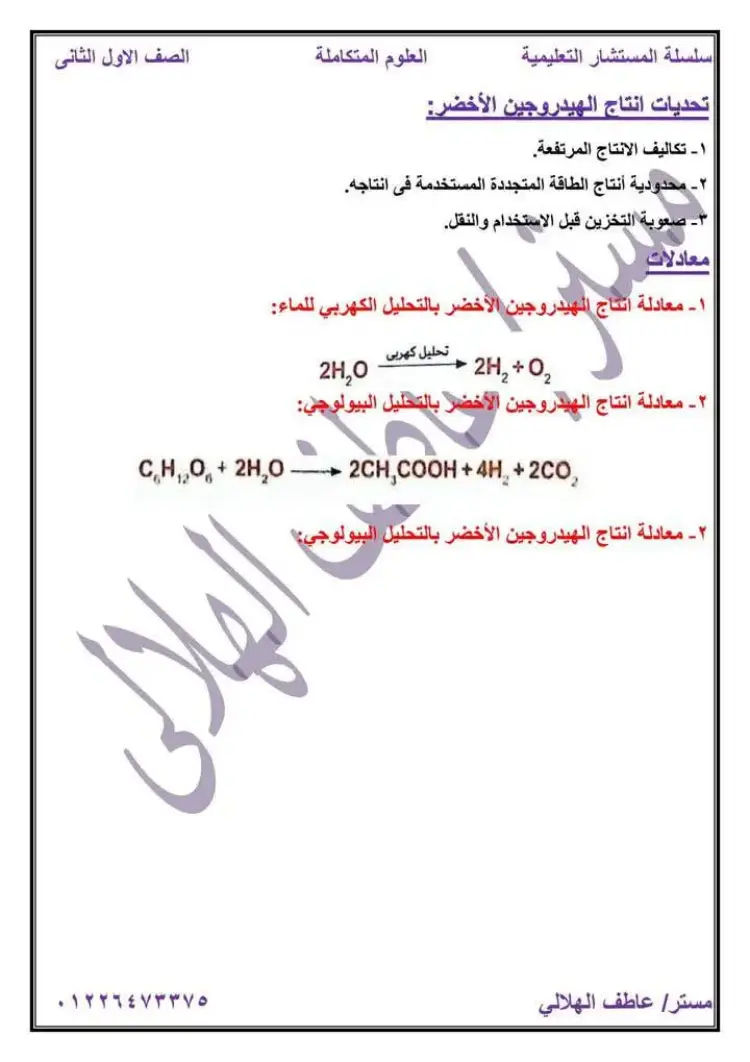 سلسلة المستشار التعليمية العلوم المتكاملة الصف الاول الثانى
تحديات انتاج الهيدروجين الأخضر:
١- تكاليف الانتاج المرتفعة.
٢- محدودية أنتاج الطاقة المتجددة المستخدمة فى انتاجه.
٣- صعوبة التخزين قبل الاستخدام والنقل.
معادلات
١- معادلة انتاج الهيدروجين الأخضر بالتحليل الكهربي للماء:
2H₂O تحليل كهربى → 2H₂ + O₂
٢- معادلة انتاج الهيدروجين الأخضر بالتحليل البيولوجي:
C₆H₁₂O₆ + 2H₂O → 2CH₃COOH + 4H₂ + 2CO₂
٢- معادلة انتاج الهيدروجين الأخضر بالتحليل البيولوجي:
مستر/ عاطف الهلالى
مستر/ عاطف الهلالي ٠١٢٢٦٤٧٣٣٧٥